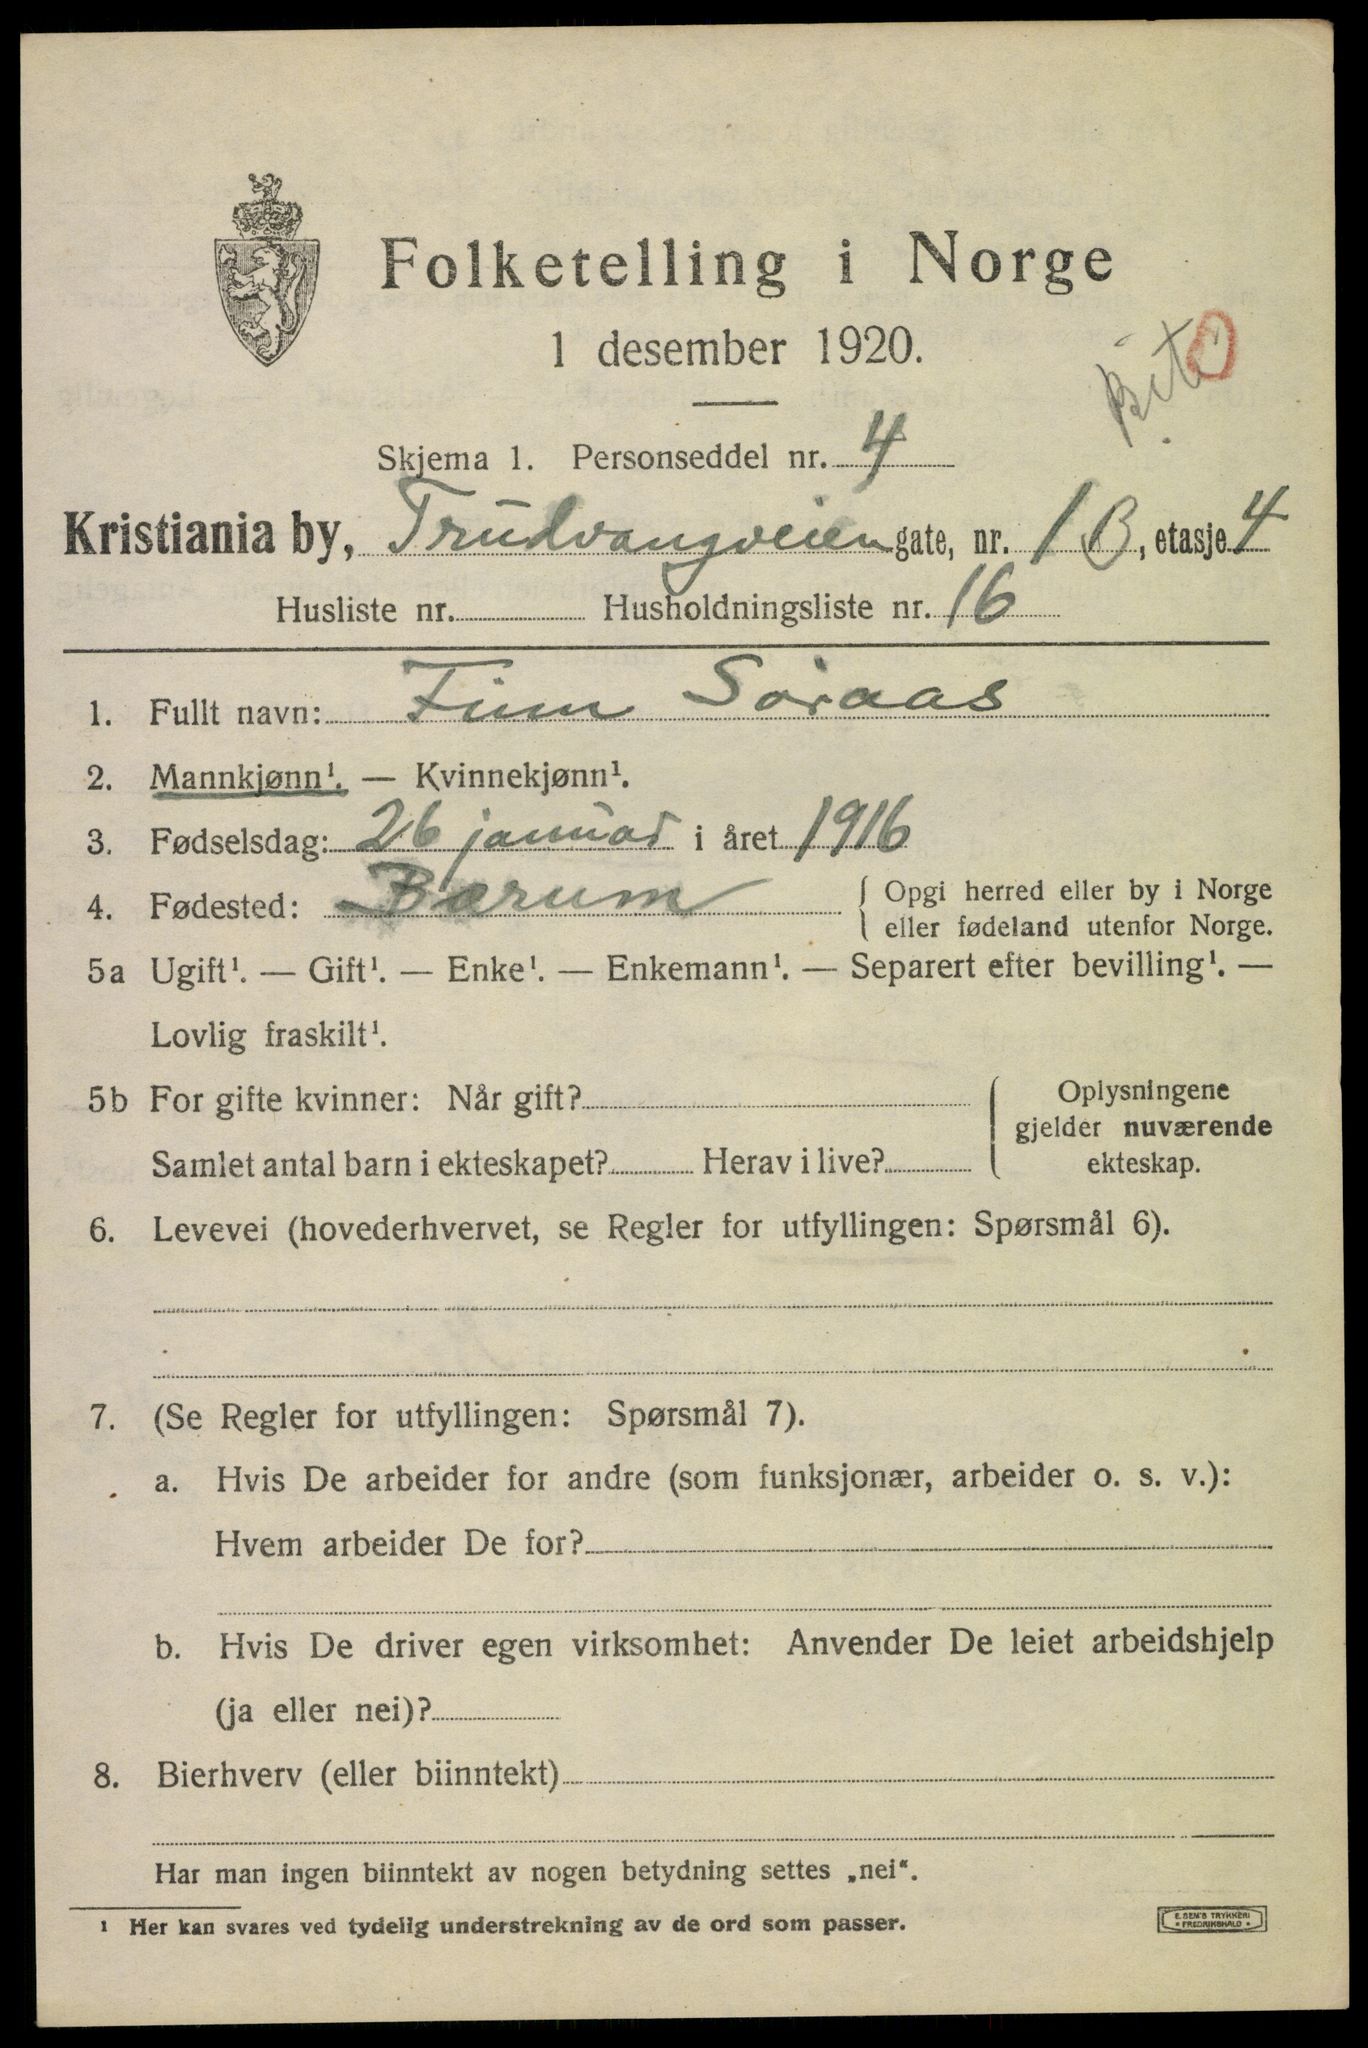 Folketelling i Norge
1 desember 1920.
Skjema 1. Personseddel nr. 4
Kristiania by, Trudvangveien gate, nr. 1 B, etasje 4
Husliste nr. Husholdningsliste nr. 16
1. Fullt navn: Finn Søraas
2. Mannkjønn¹. — Kvinnekjønn¹.
3. Fødselsdag: 26 januar i året 1916
4. Fødested: Bærum { Opgi herred eller by i Norge
eller fødeland utenfor Norge.
5a Ugift¹. — Gift¹. — Enke¹. — Enkemann¹. — Separert efter bevilling¹. —
Lovlig fraskilt¹.
5b For gifte kvinner: Når gift?
Samlet antal barn i ekteskapet? Herav i live?
Oplysningene
gjelder nuværende
ekteskap.
6. Levevei (hovederhvervet, se Regler for utfyllingen: Spørsmål 6).
7. (Se Regler for utfyllingen: Spørsmål 7).
a. Hvis De arbeider for andre (som funksjonær, arbeider o. s. v.):
Hvem arbeider De for?
b. Hvis De driver egen virksomhet: Anvender De leiet arbeidshjelp
(ja eller nei)?
8. Bierhverv (eller biinntekt)
Har man ingen biinntekt av nogen betydning settes „nei“.
¹ Her kan svares ved tydelig understrekning av de ord som passer.
E. SEM'S TRYKKERI
• FREDRIKSHALD •